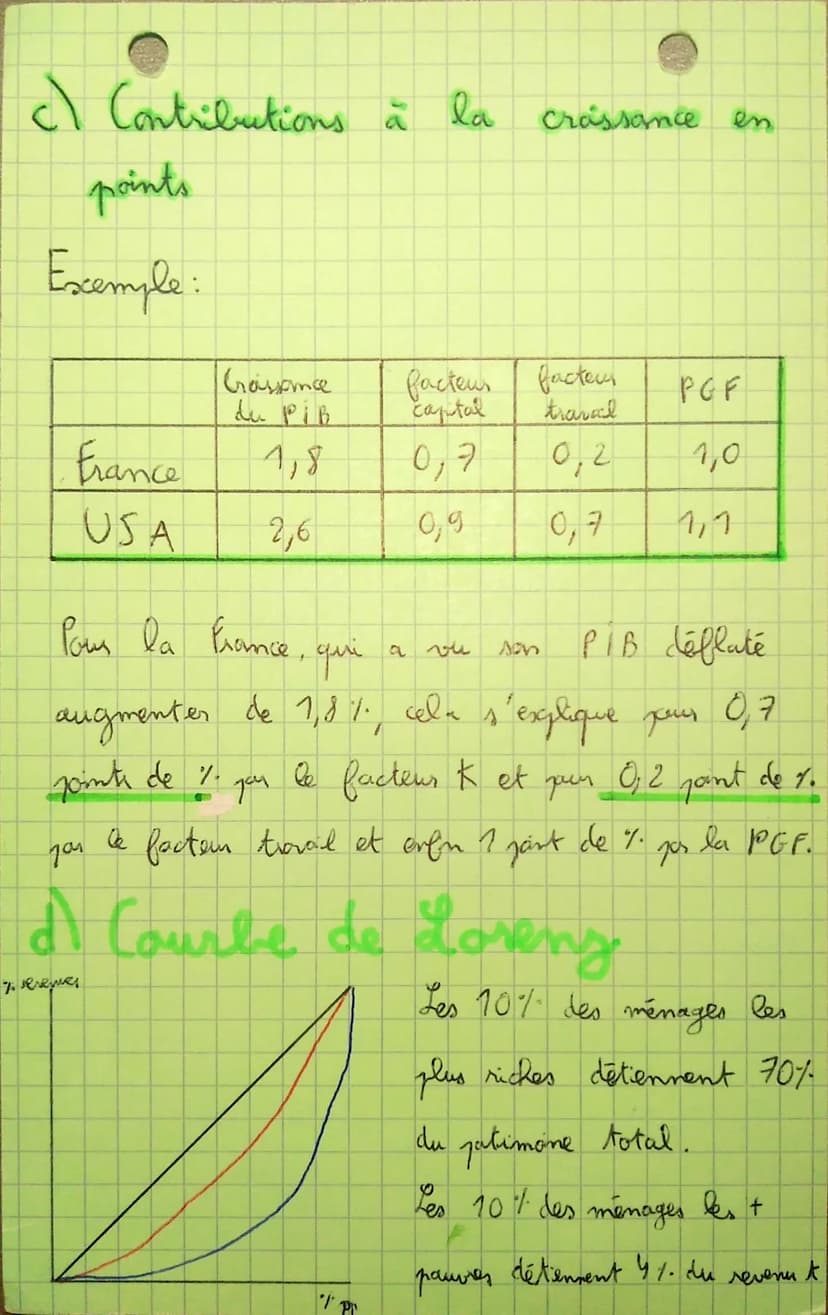 c) Contributions à la croissance en
points
Exemple:
Croissance du PiB facteur capital facteur travail PGF
France 1,8 0,7 0,2 1,0
USA 2,6 0,9 0,7 1,1
Pour la France, qui a vu son PiB déflaté
augmenter de 1,8 %, cela s'explique pour 0,7
points de % par le facteur K et pour 0,2 point de %
par le facteur travail et enfin 1 point de % par la PGF.
d) Courbe de Lorenz
% revenus
Les 10% des ménages les
plus riches détiennent 70%
du patimoine total.
Les 10% des ménages les +
pauvres détiennent 4% du revenu t
%